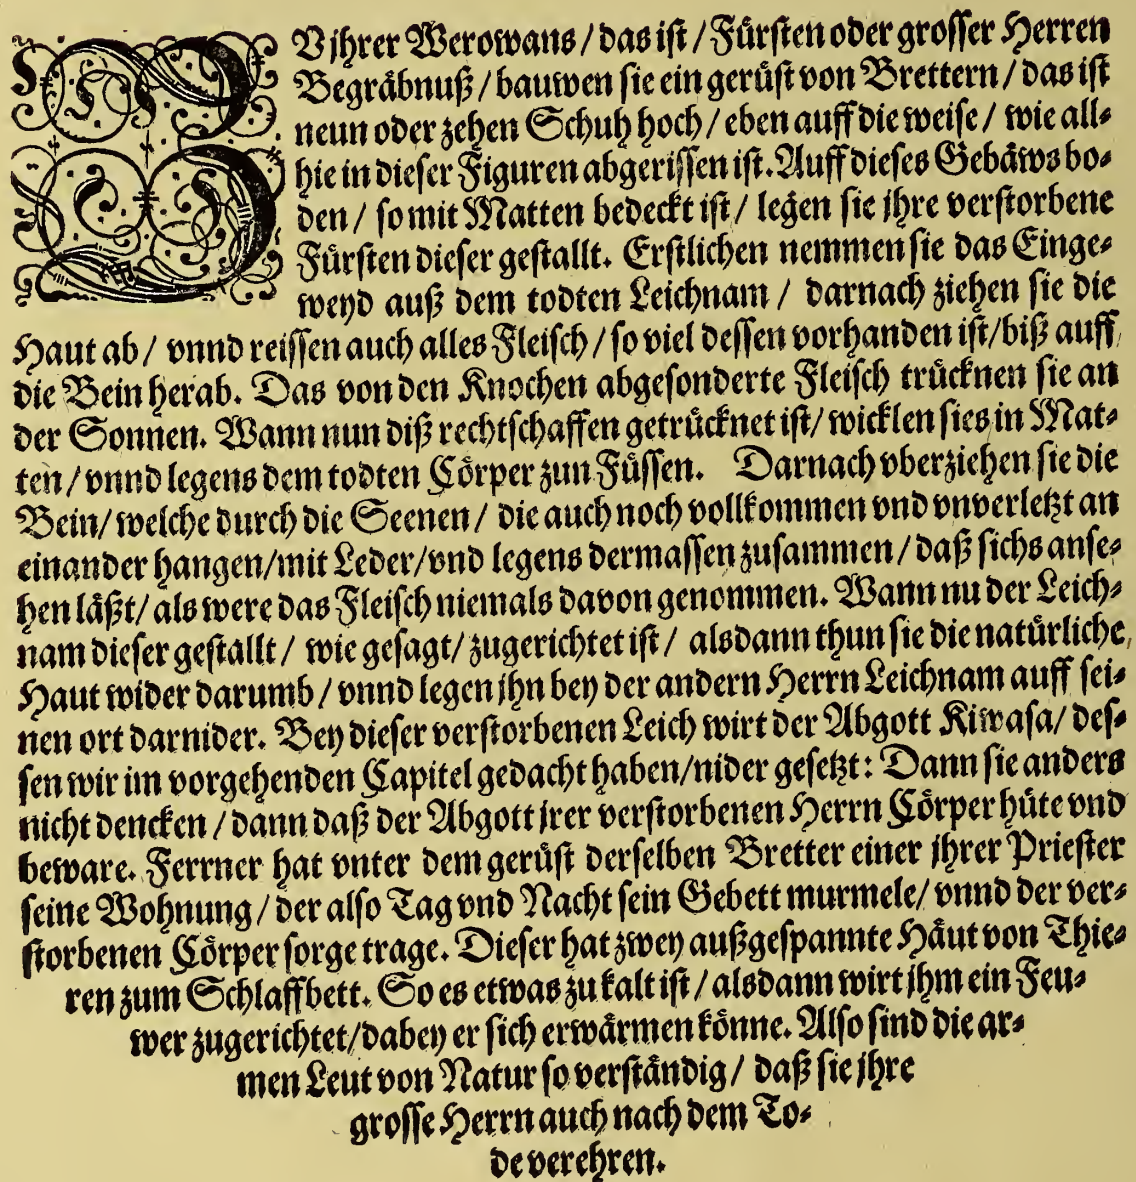 ZV jhrer Werowans / das ist / Fürsten oder grosser Herren
Begräbnuß / bauwen sie ein gerüst von Brettern / das ist
neun oder zehen Schuh hoch / eben auff die weise / wie all⸗
hie in dieser Figuren abgerissen ist. Auff dieses Gebäws bo⸗
den / so mit Matten bedeckt ist / legen sie jhre verstorbene
Fürsten dieser gestallt. Erstlichen nemmen sie das Einge⸗
weyd auß dem todten Leichnam / darnach ziehen sie die
Haut ab / vnnd reissen auch alles Fleisch / so viel dessen vorhanden ist / biß auff
die Bein herab. Das von den Knochen abgesonderte Fleisch trücknen sie an
der Sonnen. Wann nun diß rechtschaffen getrücknet ist / wicklen sies in Mat⸗
ten / vnnd legens dem todten Cörper zun Füssen. Darnach vberziehen sie die
Bein / welche durch die Seenen / die auch noch vollkommen vnd vnverletzt an
einander hangen / mit Leder / vnd legens dermassen zusammen / daß sichs anse⸗
hen läßt / als were das Fleisch niemals davon genommen. Wann nu der Leich⸗
nam dieser gestallt / wie gesagt / zugerichtet ist / alsdann thun sie die natürliche
Haut wider darumb / vnnd legen jhn bey der andern Herrn Leichnam auff sei⸗
nen ort darnider. Bey dieser verstorbenen Leich wirt der Abgott Kiwasa / des⸗
sen wir im vorgehenden Capitel gedacht haben / nider gesetzt: Dann sie anders
nicht dencken / dann daß der Abgott jrer verstorbenen Herrn Cörper hüte vnd
beware. Ferrner hat vnter dem gerüst derselben Bretter einer jhrer Priester
seine Wohnung / der also Tag vnd Nacht sein Gebett murmele / vnnd der ver⸗
storbenen Cörper sorge trage. Dieser hat zwey außgespannte Häut von Thie⸗
ren zum Schlaffbett. So es etwas zu kalt ist / alsdann wirt jhm ein Feu⸗
wer zugerichtet / dabey er sich erwärmen könne. Also sind die ar⸗
men Leut von Natur so verständig / daß sie jhre
grosse Herrn auch nach dem To⸗
de verehren.